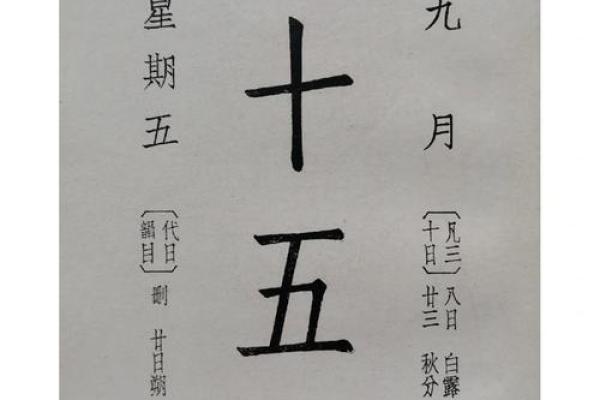 九月
〔凡三十日〕
八日 白露
廿三 秋分
十五
星期五
〔代日韻目〕
刪
廿日朔